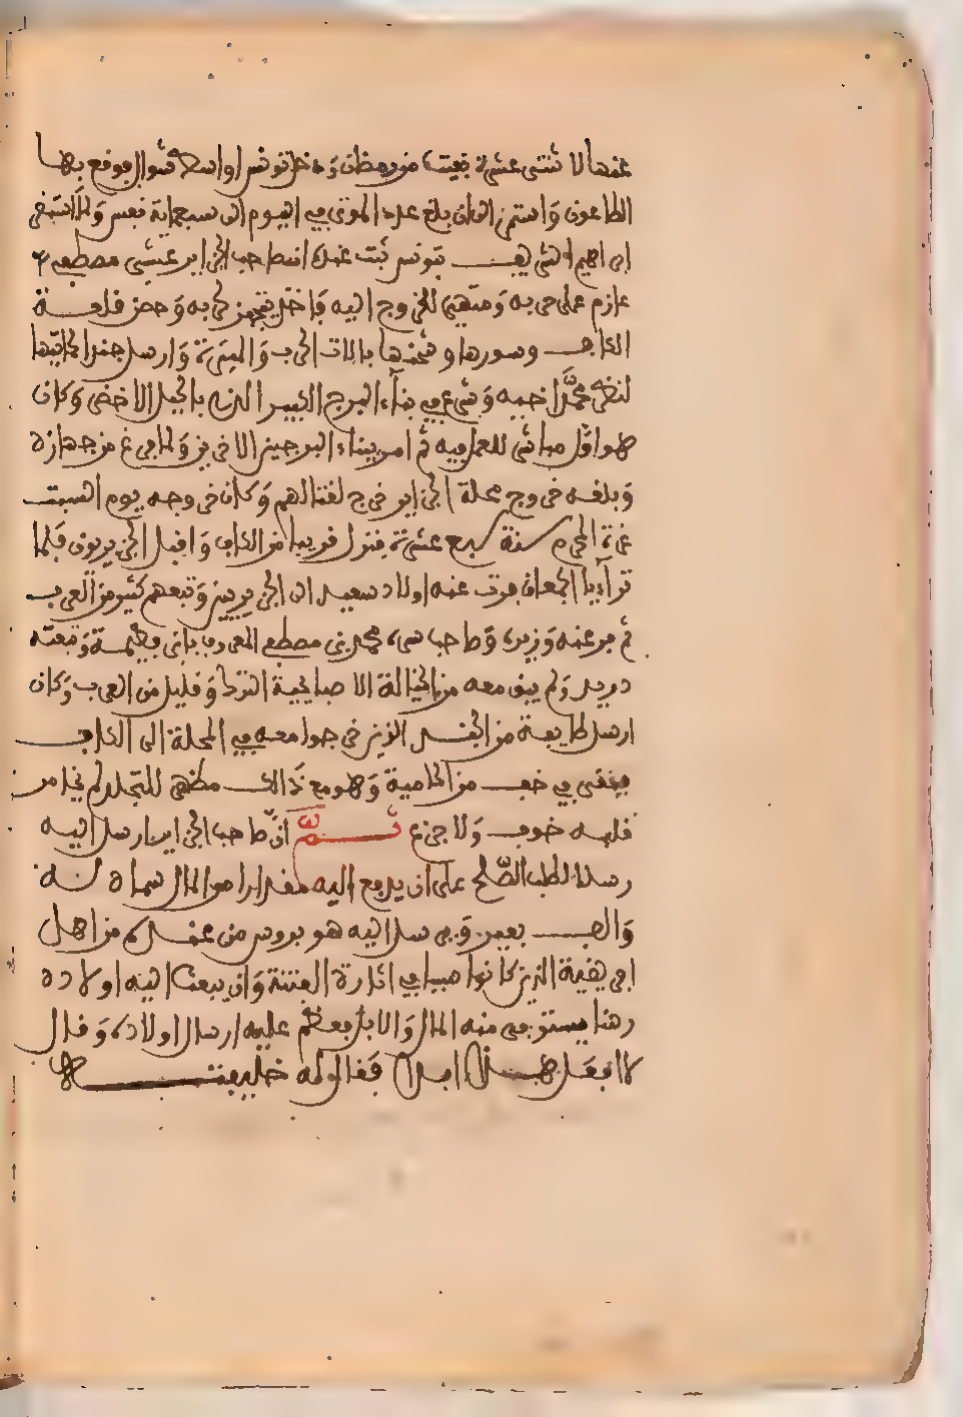 عنها لاثنتي عشرة بقيت من رمضان ودخل تونس اواسط شوال فوقع بها
الطاعون واستمر الى ان بلغ عدد الموتى في اليوم الى سبعماية نفس ولما استقر
ابراهيم الشريف بتونس ثبت عنده ان صاحب الجزاير عشي مصطفى
عازم على حربه ومتهيئ للخروج اليه فاخذ يتجهز لحربه وحصن قلعة
الكاف وسورها وشحنها بالات الحرب والميرة وارسل جندا لحمايتها
لنظر محمد اخيه وشرع في بناء البرج الكبير الذي بالجبل الاخضر وكان
هو اول مباشر للعمل فيه ثم امر ببناء البرجين الاخرين ولما فرغ من جهازه
وبلغه خروج محلة الجزاير خرج لقتالهم وكان خروجه يوم السبت
غرة المحرم سنة سبع عشرة فنزل قريبا من الكاف واقبل الجزيريون فلما
تراءيا الجمعان فرت عنه اولاد سعيد الى الجزيريين وتبعهم كثير من العرب
ثم فر عنه وزيره وصاحب سره محمد بن مصطفى المعروف بابن فطيمة وتبعته
دريد ولم يبق معه من الخيالة الا صبايحية الترك وقليل من العرب وكان
ارسل طايفة من الجند الذين خرجوا معه في المحلة الى الكاف
فبقي في خف من الحامية وهو مع ذالك مظهر للتجلد لم يخامر
قلبه خوف ولا جزع ثم ان صاحب الجزاير ارسل اليه
رسلا لطلب الصلح على ان يدفع اليه مقدارا من المال سماه له
والف بعير وفرسا اليه هو بروس من عنده من اهل
افريقية الذين كانوا سببا في اثارة الفتنة وان يبعث اليه اولاده
رهنا يستوفى منه المال والابل فعظم عليه ارسال اولاده وقال
لا افعل هذا ابدا فقال له خليفته